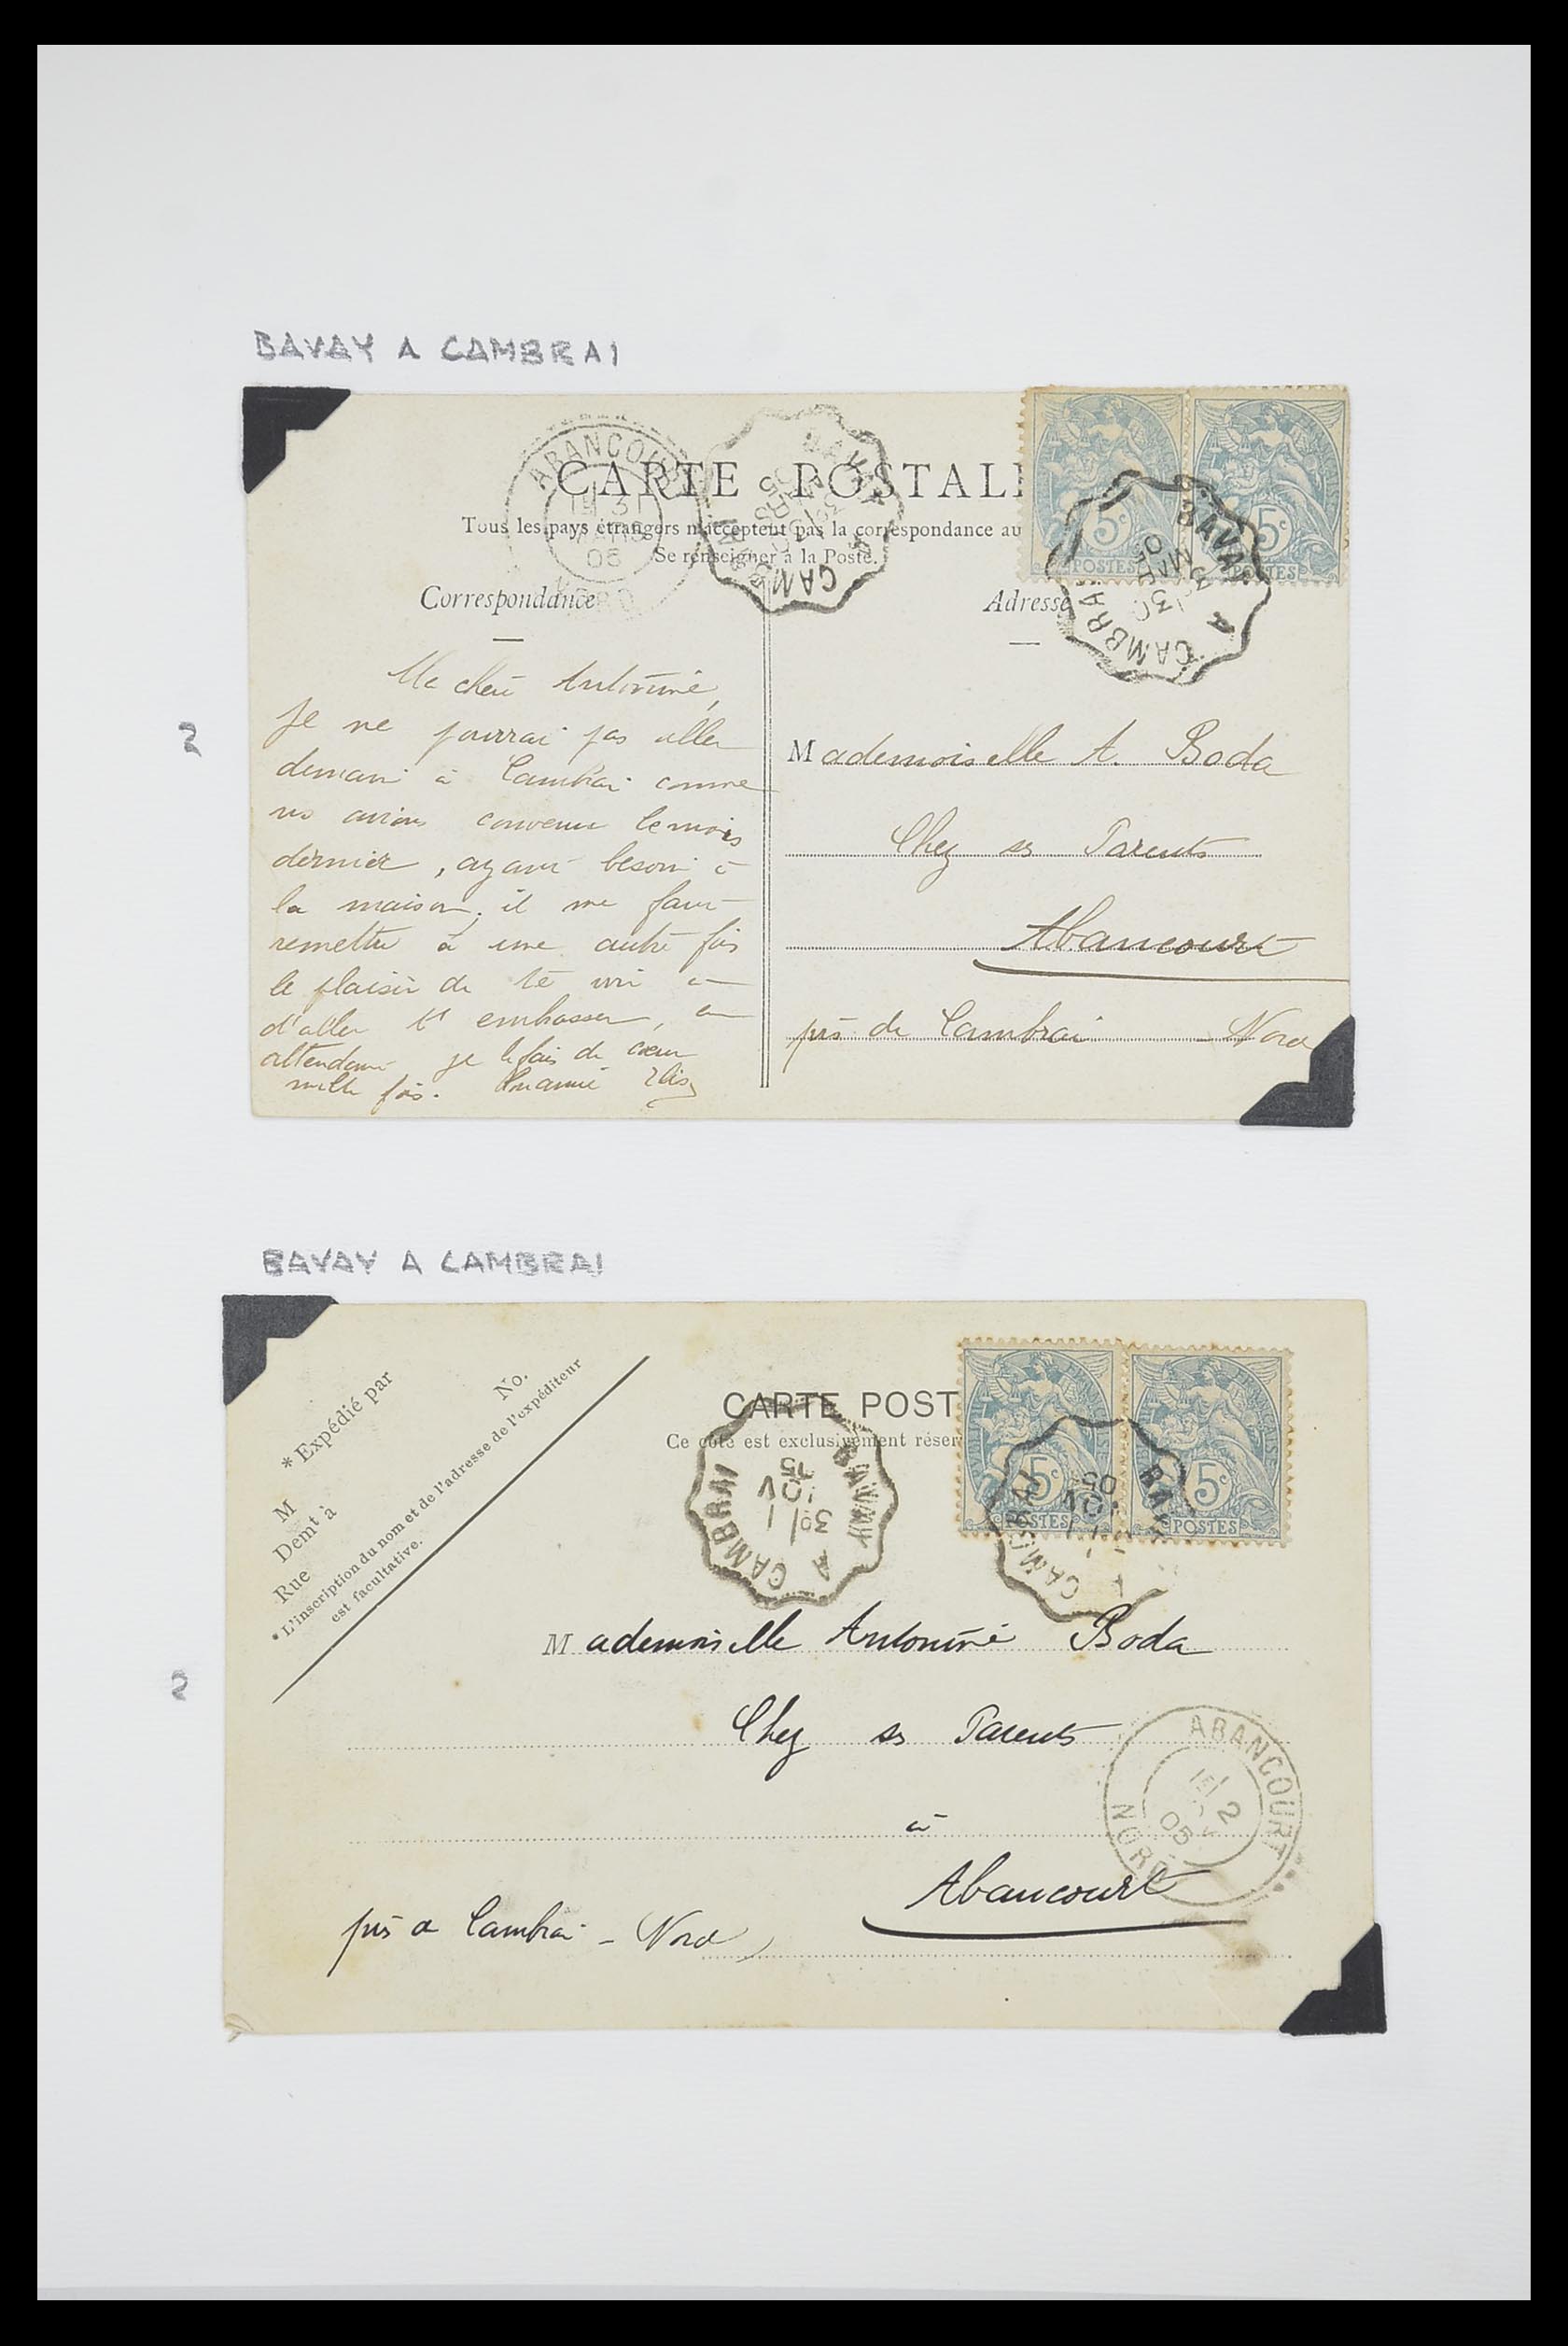 BAVAY A CAMBRAI
ABANCOURT
CARTE POSTAL
Tous les pays étrangers n'acceptent pas la correspondance au
Se renseigner à la Poste.
Correspondance
Adresse
5c 5c
POSTES POSTES
BAVAY A CAMBRAI
BAVAY A CAMBRAI
31
05
NORD
2
Ma chère Antonine,
Je ne pourrai pas aller
demain à Cambrai comme
ns avions convenu le mois
dernier, ayant besoin à
la maison; il me faut
remettre à une autre fois
le plaisir de te voir et
d'aller t' embrasser, en
attendant je le fais de cœur
mille fois.
Mademoiselle A. Boda
Chez ses Parents
Abancourt
près de Cambrai - Nord
BAVAY A CAMBRAI
2
* Expédié par
No.
M
Demt à
Rue
* L'inscription du nom et de l'adresse de l'expéditeur
est facultative.
CARTE POST
Ce côté est exclusivement réser
5c 5c
POSTES POSTES
BAVAY A CAMBRAI
NOV
05
BAV CAMBRAI
NOV
05
Mademoiselle Antonine Boda
Chez ses Parents
à
Abancourt
près de Cambrai - Nord
ABANCOURT
2
05
NORD